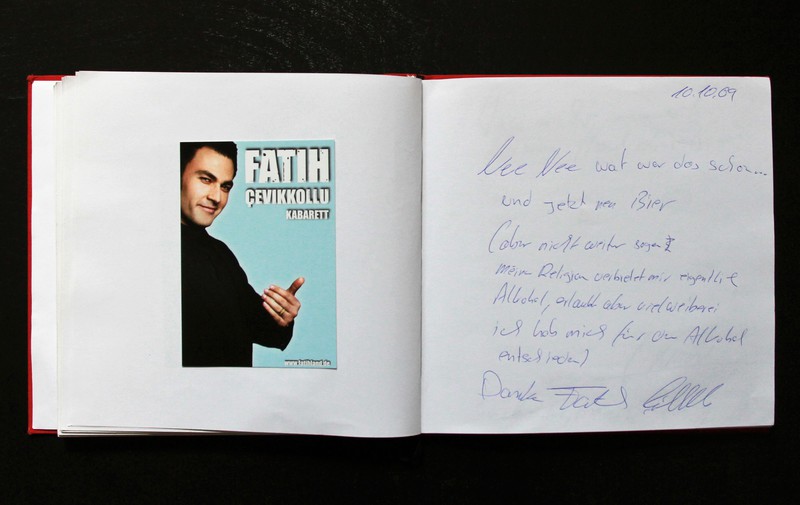 FATIH
ÇEVIKKOLLU
KABARETT
www.fatihland.de
10.10.09
Nee Nee wat war das schön...
und jetzt nen Bier
(aber nicht weiter sagen
meine Religion verbietet mir eigentlich
Alkohol, erlaubt aber vielweiberei
ich hab mich für den Alkohol
entschieden)
Danke Fatih